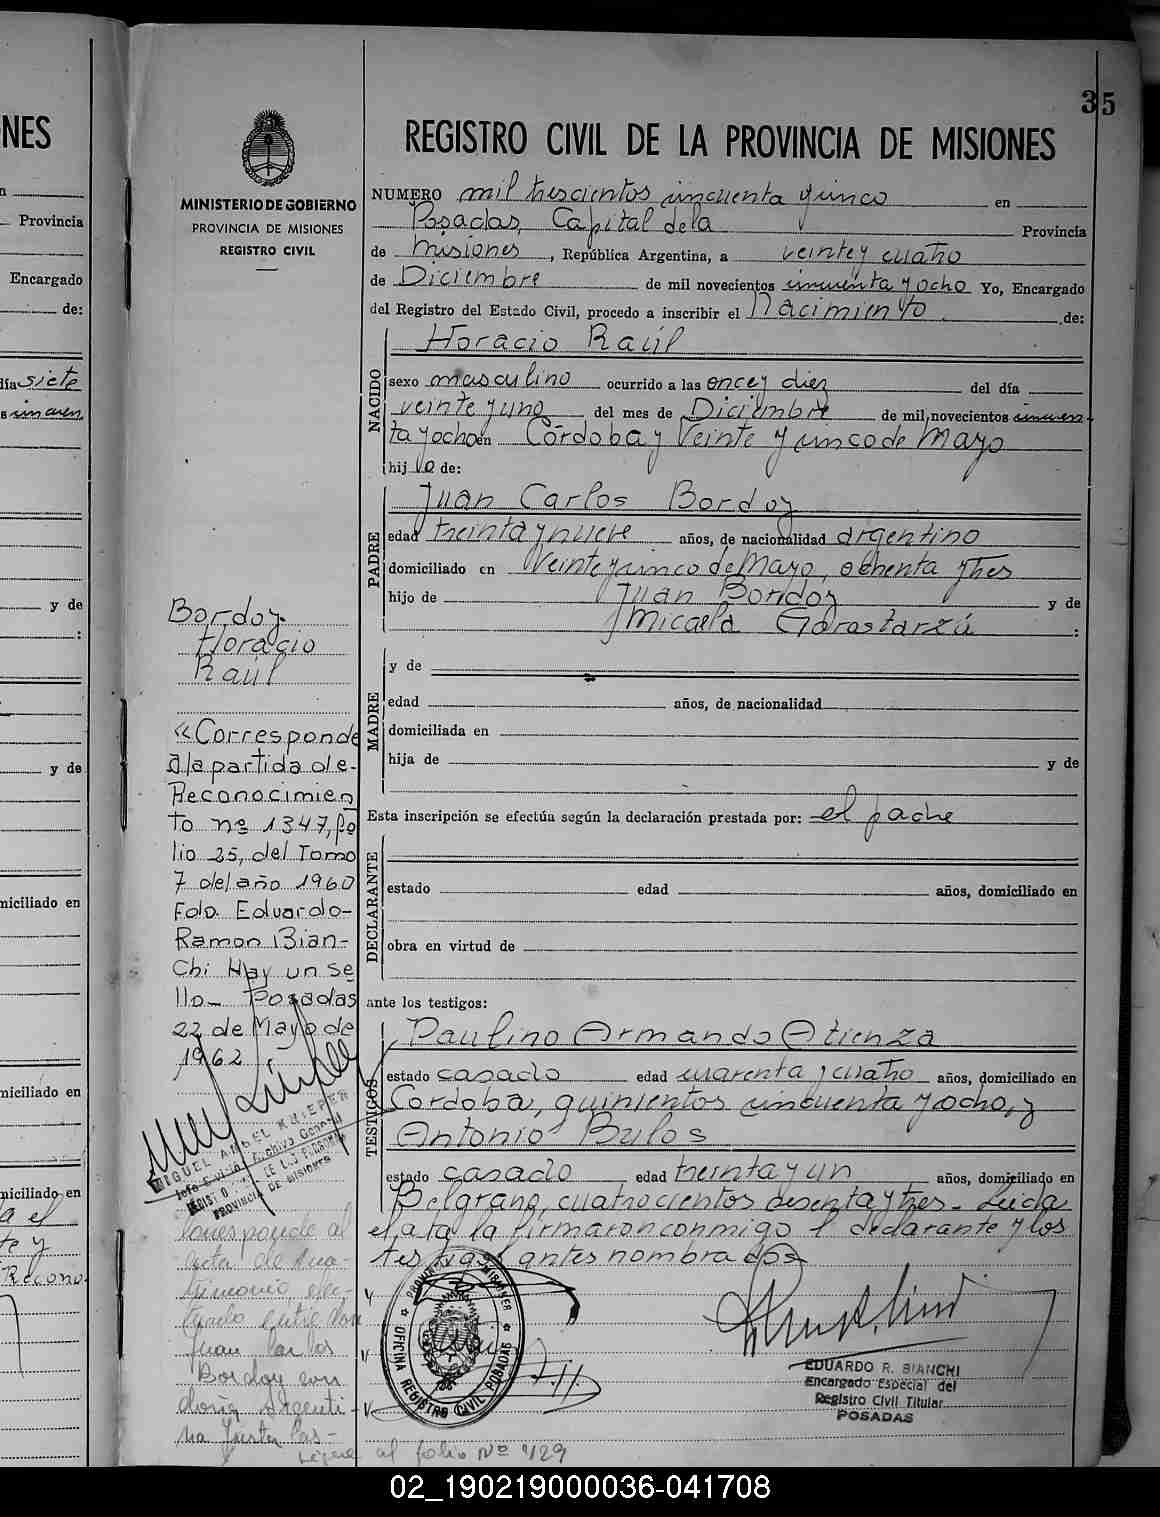 35
NES
REGISTRO CIVIL DE LA PROVINCIA DE MISIONES
MINISTERIO DE GOBIERNO
PROVINCIA DE MISIONES
REGISTRO CIVIL
Provincia
Encargado
de:
día siete
y de
:
y de
miciliado en
miciliado en
miciliado en
a el
te y
Recono
NUMERO mil trescientos cincuenta y cinco en
Posadas, Capital de la Provincia
de Misiones, República Argentina, a veinte y cuatro
de Diciembre de mil novecientos cincuenta y ocho Yo, Encargado
del Registro del Estado Civil, procedo a inscribir el Nacimiento de:
NACIDO
Horacio Raúl
sexo masculino ocurrido a las once y diez del día
veinte y uno del mes de Diciembre de mil novecientos cincuen
ta y ocho en Córdoba y Veinte y cinco de Mayo
hij o de:
PADRE
Juan Carlos Bordoy
edad treinta y nueve años, de nacionalidad argentino
domiciliado en Veinte y cinco de Mayo, ochenta y tres
hijo de Juan Bordoy y de
Micaela Garastarzú :
MADRE
y de
edad años, de nacionalidad
domiciliada en
hija de y de
Esta inscripción se efectúa según la declaración prestada por: el padre
DECLARANTE
estado edad años, domiciliado en
obra en virtud de
ante los testigos:
TESTIGOS
Paulino Armando Atienza
estado casado edad cuarenta y cuatro años, domiciliado en
Córdoba, quinientos cincuenta y ocho, y
Antonio Bulos
estado casado edad treinta y un años, domiciliado en
Belgrano, cuatrocientos sesenta y tres. Leída
el acta la firmaron conmigo el declarante y los
testigos antes nombrados
Bordoy
Horacio
Raúl
«Corresponde
a la partida de
Reconocimien
to nº 1347, fo
lio 25, del Tomo
7 del año 1960
Fdo. Eduardo
Ramon Bian-
chi Hay un se
llo- Posadas
22 de Mayo de
1962
MIGUEL ANGEL
Jefe Archivo General
REGIST DE LAS PERSONAS
PROVINCIA DE MISIONES
Corresponde al
acta de Ma-
trimonio efec-
tuado entre don
Juan Carlos
Bordoy con
doña Argenti-
na
al folio Nº 429
PROVINCIA MISIONES
OFICINA REGISTRO CIVIL POSADAS
EDUARDO R. BIANCHI
Encargado Especial del
Registro Civil Titular
POSADAS
02_190219000036-041708